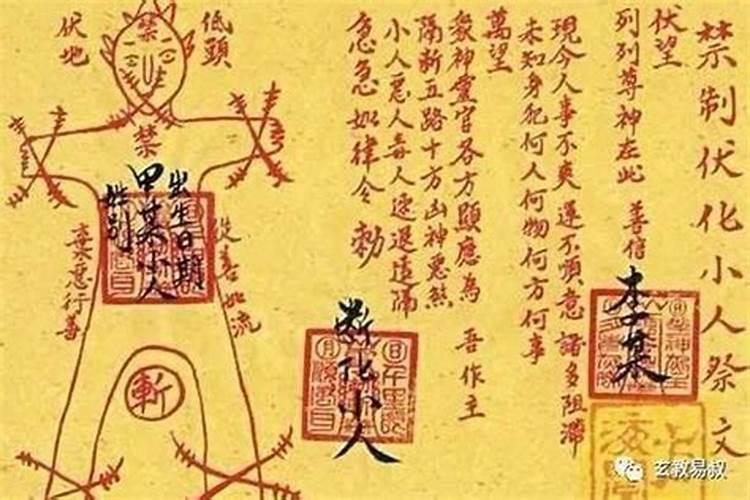 禁制伏化小人祭文
伏望
列列尊神在此 善信 李某
現今人事不爽運不順意諸多阻滯
未知身犯何人何物何方何事
萬望
眾神靈官各方顯應為 吾作主
隔斷五路十方凶神惡煞
小人惡人毒人速退遠隔
急急如律令 勅
斷化小人
低頭
禁
伏地
禁
出生日期
甲某小人
姓別
從善如流
棄惡行善
斬
玄教易叔